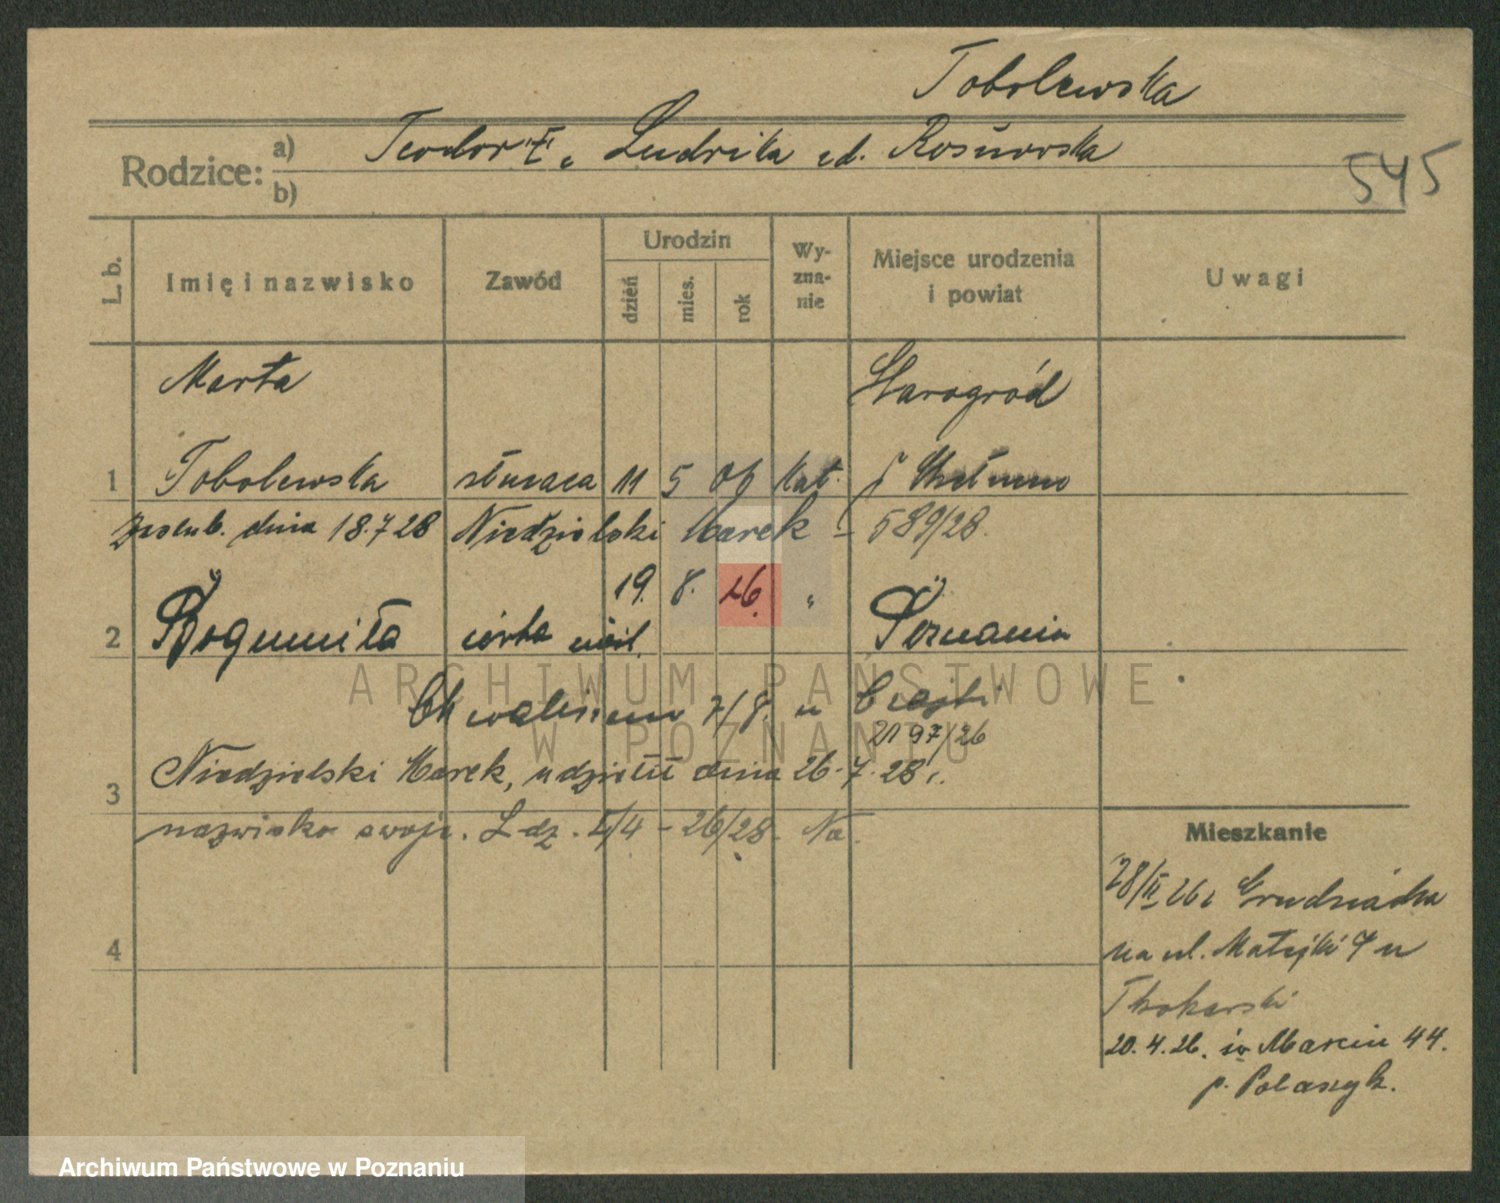 Tobolewska
Rodzice: a) Teodor i Ludwika zd. Rośnowska
b)
545
L. b.
Imię i nazwisko
Zawód
Urodzin
dzień
mies.
rok
Wy-
zna-
nie
Miejsce urodzenia
i powiat
Uwagi
Marta
Starogród
1 Tobolewska służąca 11 5 06 kat. p. Chełmno
zaślub. dnia 18.7.28 Niedzielski Marek - 589/28.
19. 8. 26. "
2 Bogumiła córka nieśl. Poznania
7/8. u
2197/26
3 Niedzielski Marek, udzielił dnia 26.7.28 r.
nazwisko swoje. L. dz. 5/4 - 26/28. Na.
Mieszkanie
28/II 26 z Grudziądza
na ul. Matejki 7 u
Tkokarski
20.4.26. św Marcin 44.
p. Polaszyk.
4
ARCHIWUM PAŃSTWOWE
W POZNANIU
Archiwum Państwowe w Poznaniu